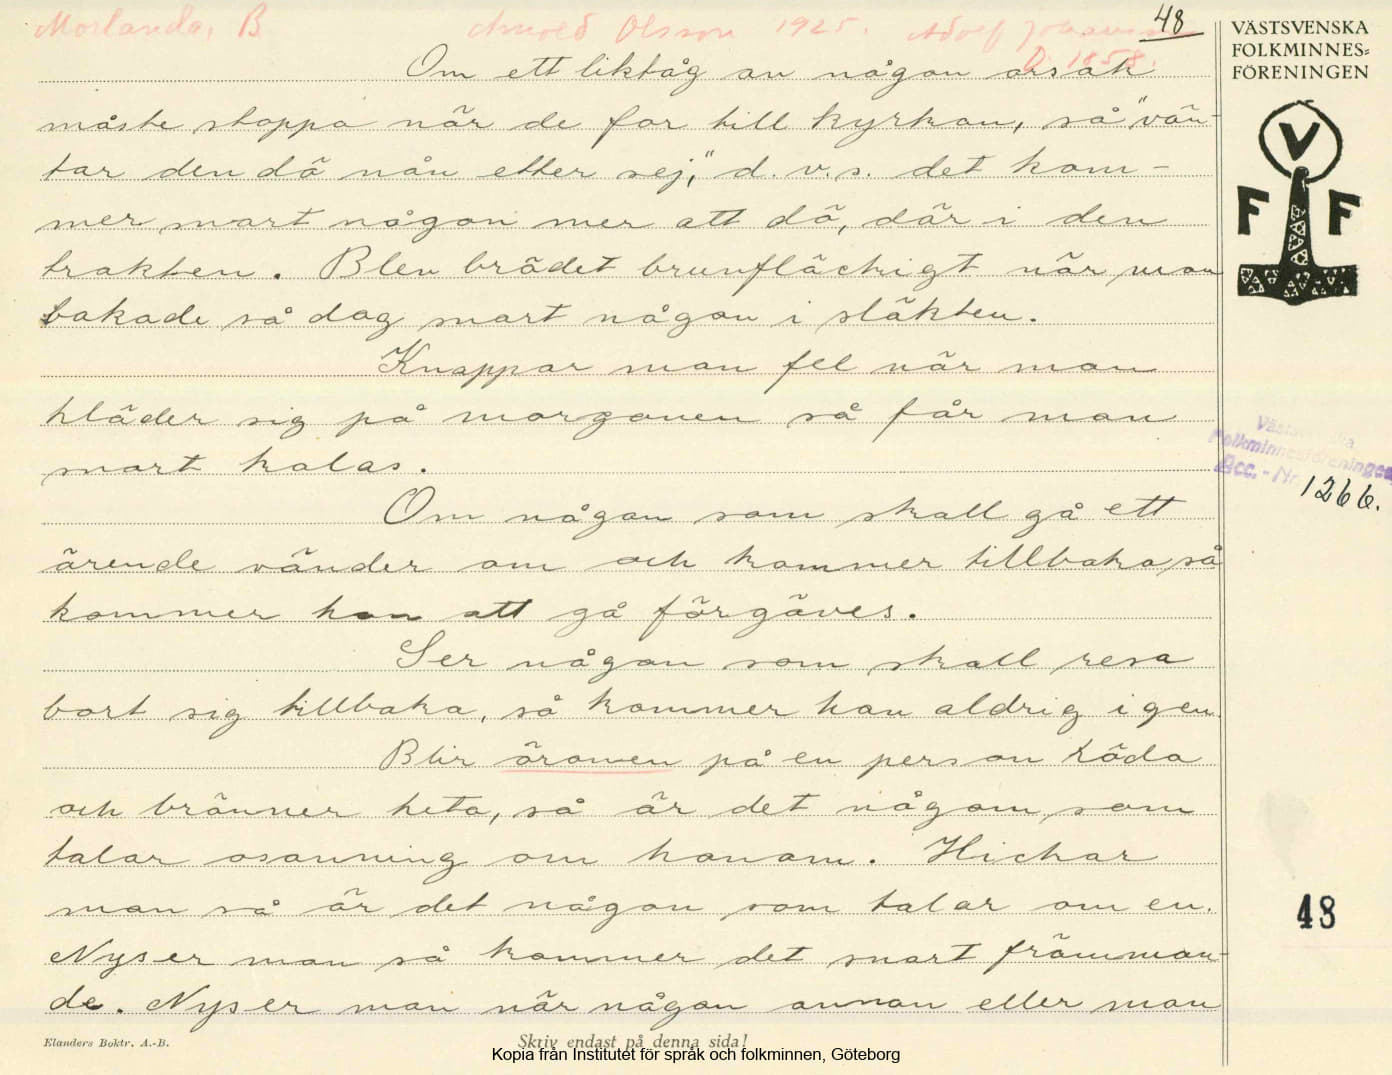 Morlanda, B Arnold Olsson 1925. Adolf Johansson 48
D. 1858.
VÄSTSVENSKA
FOLKMINNES=
FÖRENINGEN
V
F F
Om ett liktåg av någon orsak
måste stoppa när de for till kyrkan, så "vän-
tar den dö nån etter sej," d.v.s. det kom-
mer snart någon mer att dö, där i den
trakten. Blev brödet brunfläckigt när man
bakade så dog snart någon i släkten.
Knappar man fel när man
kläder sig på morgonen så får man
snart kalas.
Om någon som skall gå ett
ärende vänder om och kommer tillbaka så
kommer han att gå förgäves.
Ser någon som skall resa
bort sig tillbaka, så kommer han aldrig igen.
Blir öronen på en person röda
och bränner heta, så är det någon som
talar osanning om honom. Hickar
man så är det någon som talar om en.
Nyser man så kommer det snart främman-
de. Nyser man när någon annan eller man
Västsvenska
Folkminnesföreningen
Acc.-Nr 1266.
48
Elanders Boktr. A.-B.
Skriv endast på denna sida!
Kopia från Institutet för språk och folkminnen, Göteborg